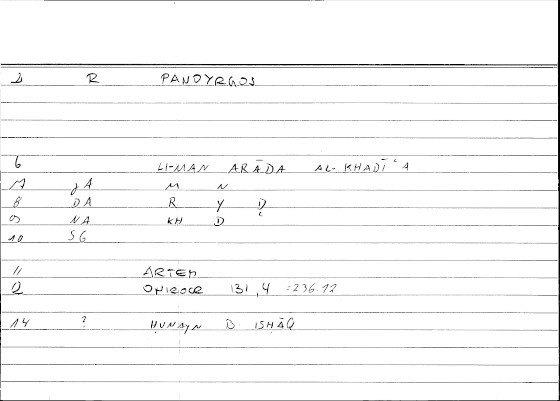 D R PANOYRGOS
6 LI-MAN ARĀDA AL-KHADĪʿA
gA M N
8 DA R Y Ḍ
9 NA KH D ʿ
10 SG
11 ARTEM
ONIROCR 131,4 =236.12
14 ? ḤUNAYN B. ISḤĀQ